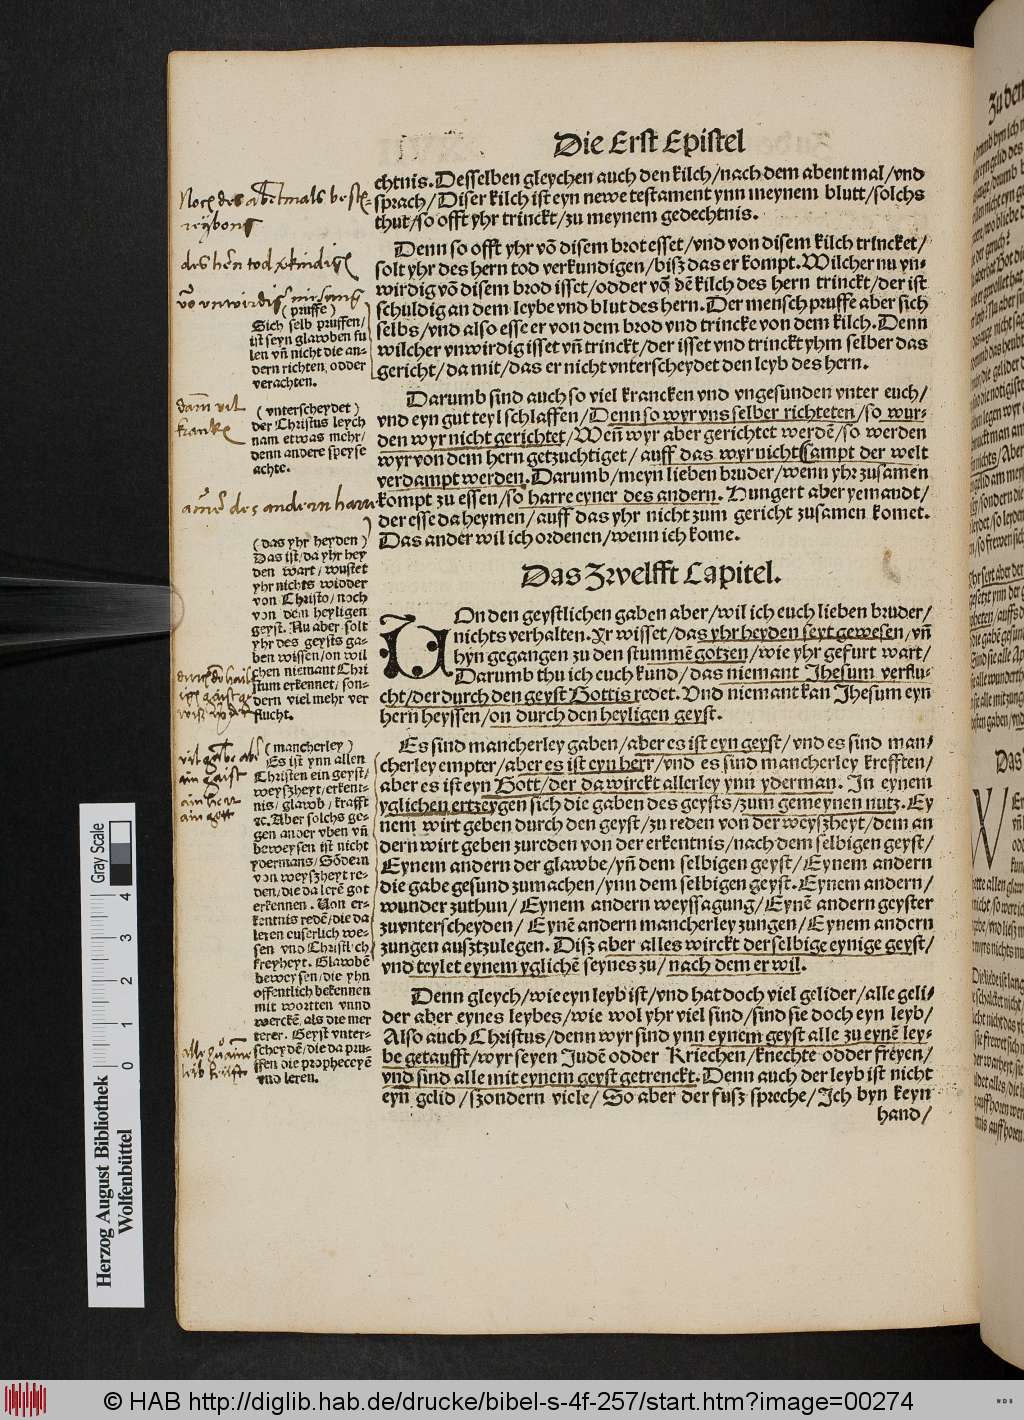 Die Erst Epistel
chtnis. Desselben gleychen auch den kilch/nach dem abent mal/vnd
sprach/Diser kilch ist eyn newe testament ynn meynem blutt/solchs
thut/so offt yhr trinckt/zu meynem gedechtnis.
Denn so offt yhr võ disem brot esset/vnd von disem kilch trincket/
solt yhr des hern tod verkundigen/bisz das er kompt. Wilcher nu yn-
wirdig võ disem brod isset/odder võ dẽ kilch des hern trinckt/der ist
schuldig an dem leybe vnd blut des hern. Der mensch pruffe aber sich
selbs/vnd also esse er von dem brod vnd trincke von dem kilch. Denn
wilcher vnwirdig isset vñ trinckt/der isset vnd trinckt yhm selber das
gericht/da mit/das er nicht vnterscheydet den leyb des hern.
Darumb sind auch so viel krancken vnd vngesunden vnter euch/
vnd eyn gut teyl schlaffen/Denn so wyr vns selber richteten/so wur-
den wyr nicht gerichtet/Weñ wyr aber gerichtet werdẽ/so werden
wyr von dem hern getzuchtiget/auff das wyr nicht sampt der welt
verdampt werden. Darumb/meyn lieben bruder/wenn yhr zusamen
kompt zu essen/so harre eyner des andern. Hungert aber yemandt/
der esse da heymen/auff das yhr nicht zum gericht zusamen komet.
Das ander wil ich ordenen/wenn ich kome.
Das Zwelfft Capitel.
VOn den geystlichen gaben aber/wil ich euch lieben bruder/
nichts verhalten. Yr wisset/das yhr heyden seyt gewesen/vñ
hyn gegangen zu den stummẽ gotzen/wie yhr gefurt wart/
Darumb thu ich euch kund/das niemant Jhesum verflu-
cht/der durch den geyst Gottis redet. Vnd niemant kan Jhesum eyn
hern heyssen/on durch den heyligen geyst.
Es sind mancherley gaben/aber es ist eyn geyst/vnd es sind man-
cherley empter/aber es ist eyn herr/vnd es sind mancherley krefften/
aber es ist eyn Gott/der da wirckt allerley ynn yderman. In eynem
yglichen ertzeygen sich die gaben des geysts/zum gemeynen nutz. Ey
nem wirt geben durch den geyst/zu reden von der weyszheyt/dem an
dern wirt geben zureden von der erkentnis/nach dem selbigen geyst/
Eynem andern der glawbe/yñ dem selbigen geyst/Eynem andern
die gabe gesund zumachen/ynn dem selbigen geyst. Eynem andern/
wunder zuthun/Eynem andern weyssagung/Eynẽ andern geyster
zuvnterscheyden/Eynẽ andern mancherley zungen/Eynem andern
zungen ausztzulegen. Disz aber alles wirckt der selbige eynige geyst/
vnd teylet eynem yglichẽ seynes zu/nach dem er wil.
Denn gleych/wie eyn leyb ist/vnd hat doch viel gelider/alle geli-
der aber eynes leybes/wie wol yhr viel sind/sind sie doch eyn leyb/
Also auch Christus/denn wyr sind ynn eynem geyst alle zu eynẽ ley-
be getaufft/wyr seyen Judẽ odder Kriechen/knechte odder freyen/
vnd sind alle mit eynem geyst getrenckt. Denn auch der leyb ist nicht
eyn gelid/szondern viele/So aber der fusz spreche/Ich byn keyn
hand/
(pruffe)
Sich selb pruffen/
ist seyn glawben fu
len vñ nicht die an-
dern richten odder
verachten.
(vnterscheydet)
der Christus leych
nam etwas mehr/
denn andere speyse
achte.
(das yhr heyden)
Das ist/da yhr hey
den wart/wustet
yhr nichts widder
von Christo/noch
von dem heyligen
geyst. Nu aber solt
yhr des geysts ga-
ben wissen/on wil
chen niemant Chri
stum erkennet/son-
dern viel mehr ver
flucht.
(mancherley)
Es ist ynn allen
Christen ein geyst/
weyszheyt/erkent-
nis/glawb/krafft
&c. Aber solchs ge-
gen ander vben vñ
beweysen ist nicht
ydermans/Sõdern
von weyszheyt re-
den/die da lerẽ got
erkennen. Von er-
kentnis redẽ/die da
leren euserlich we-
sen vnd Christlich
freyheyt. Glawbẽ
beweysen/die yhn
offentlich bekennen
mit wortten vnnd
werckẽ, als die mer
terer. Geyst vnter-
scheydẽ/die da pru-
ffen die propheceyẽ
vnd leren.
des hern tod
kranken
des andern harre
ain gaist
ain herr
ain gott
Zu den
Das
Gray Scale
0 1 2 3 4
Herzog August Bibliothek
Wolfenbüttel
© HAB http://diglib.hab.de/drucke/bibel-s-4f-257/start.htm?image=00274